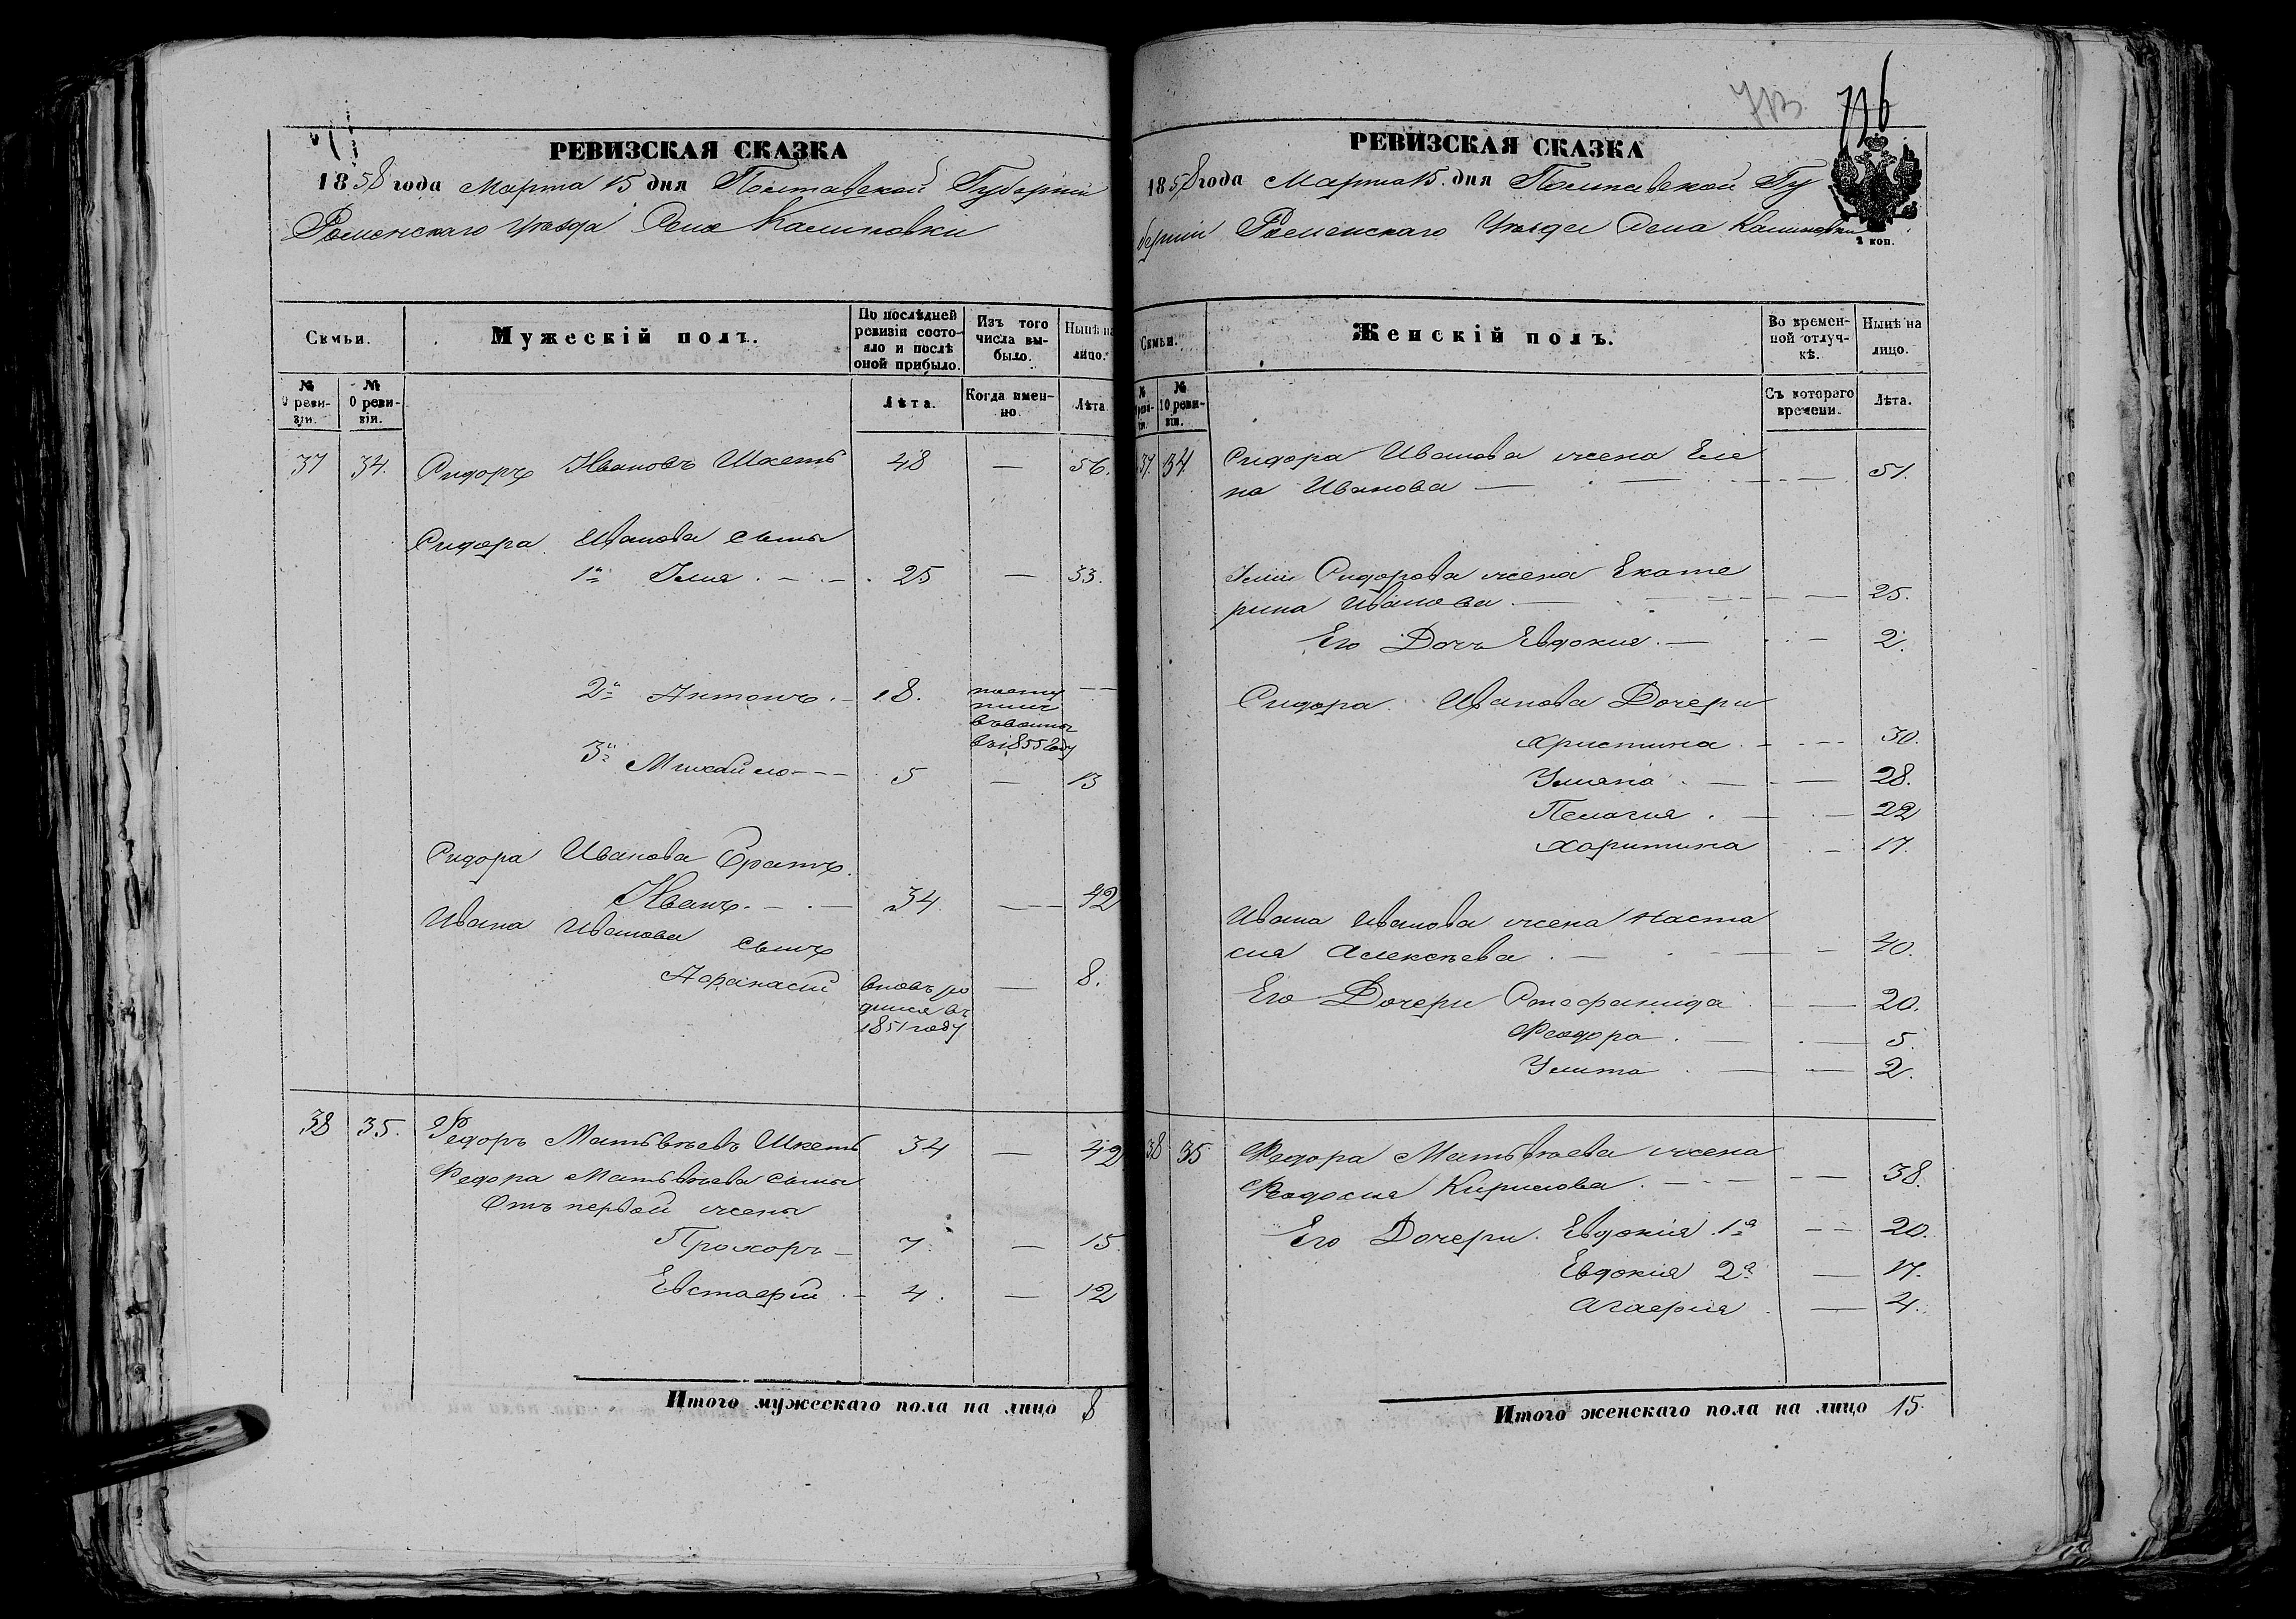 РЕВИЗСКАЯ СКАЗКА
1858 года Марта 15 дня Полтавской Губернии
Роменского уезда Села Калиновки
Семьи.
Мужескій полъ.
По послѣдней ревизіи состояло и послѣ оной прибыло.
Изъ того числа выбыло.
Нынѣ на лицо.
№ 9 ревизіи.
№ 10 ревизіи.
Лѣта.
Когда именно.
Лѣта.
37 34. Сидоръ Ивановъ Шкеть 48 — 56.
Сидора Иванова сыны
1й Илия 25 — 33.
2й Антонъ 18. поступилъ въ воины въ 1855 году —
3й Михайло 5 — 13
Сидора Иванова братъ
Иванъ 34 — 42
Ивана Иванова сынъ
Афанасий вновь родился въ 1851 году — 8.
38 35. Федоръ Матвѣевъ Шкеть 34 — 42
Федора Матвѣева сыны
Отъ первой жены
Прохоръ 7. — 15.
Евстафий 4. — 12
Итого мужескаго пола на лицо 8
713 736
РЕВИЗСКАЯ СКАЗКА
1858 года Марта 15. дня Полтавской Гу
бернии Роменскаго Уезда Села Калиновки
2 коп.
Семьи.
Женскій полъ.
Во временной отлучкѣ.
Нынѣ на лицо.
№ 9 ревизіи.
№ 10 ревизіи.
Съ котораго времени.
Лѣта.
37. 34 Сидора Иванова жена Еле
на Иванова — 51.
Илии Сидорова жена Екате
рина Иванова — 25.
Его Дочь Евдокия — 2.
Сидора Иванова Дочери
Христина — 30.
Уляна — 28.
Пелагия — 22
Харитина — 17.
Ивана Иванова жена Наста
сия Алексѣева — 40.
Его Дочери Стефанида — 20.
Феодора — 5.
Улита — 2.
38 35 Федора Матвѣева жена
Феодосия Кирилова — 38.
Его Дочери Евдокия 1я — 20.
Евдокия 2я — 17.
Агафия — 4.
Итого женскаго пола на лицо 15.